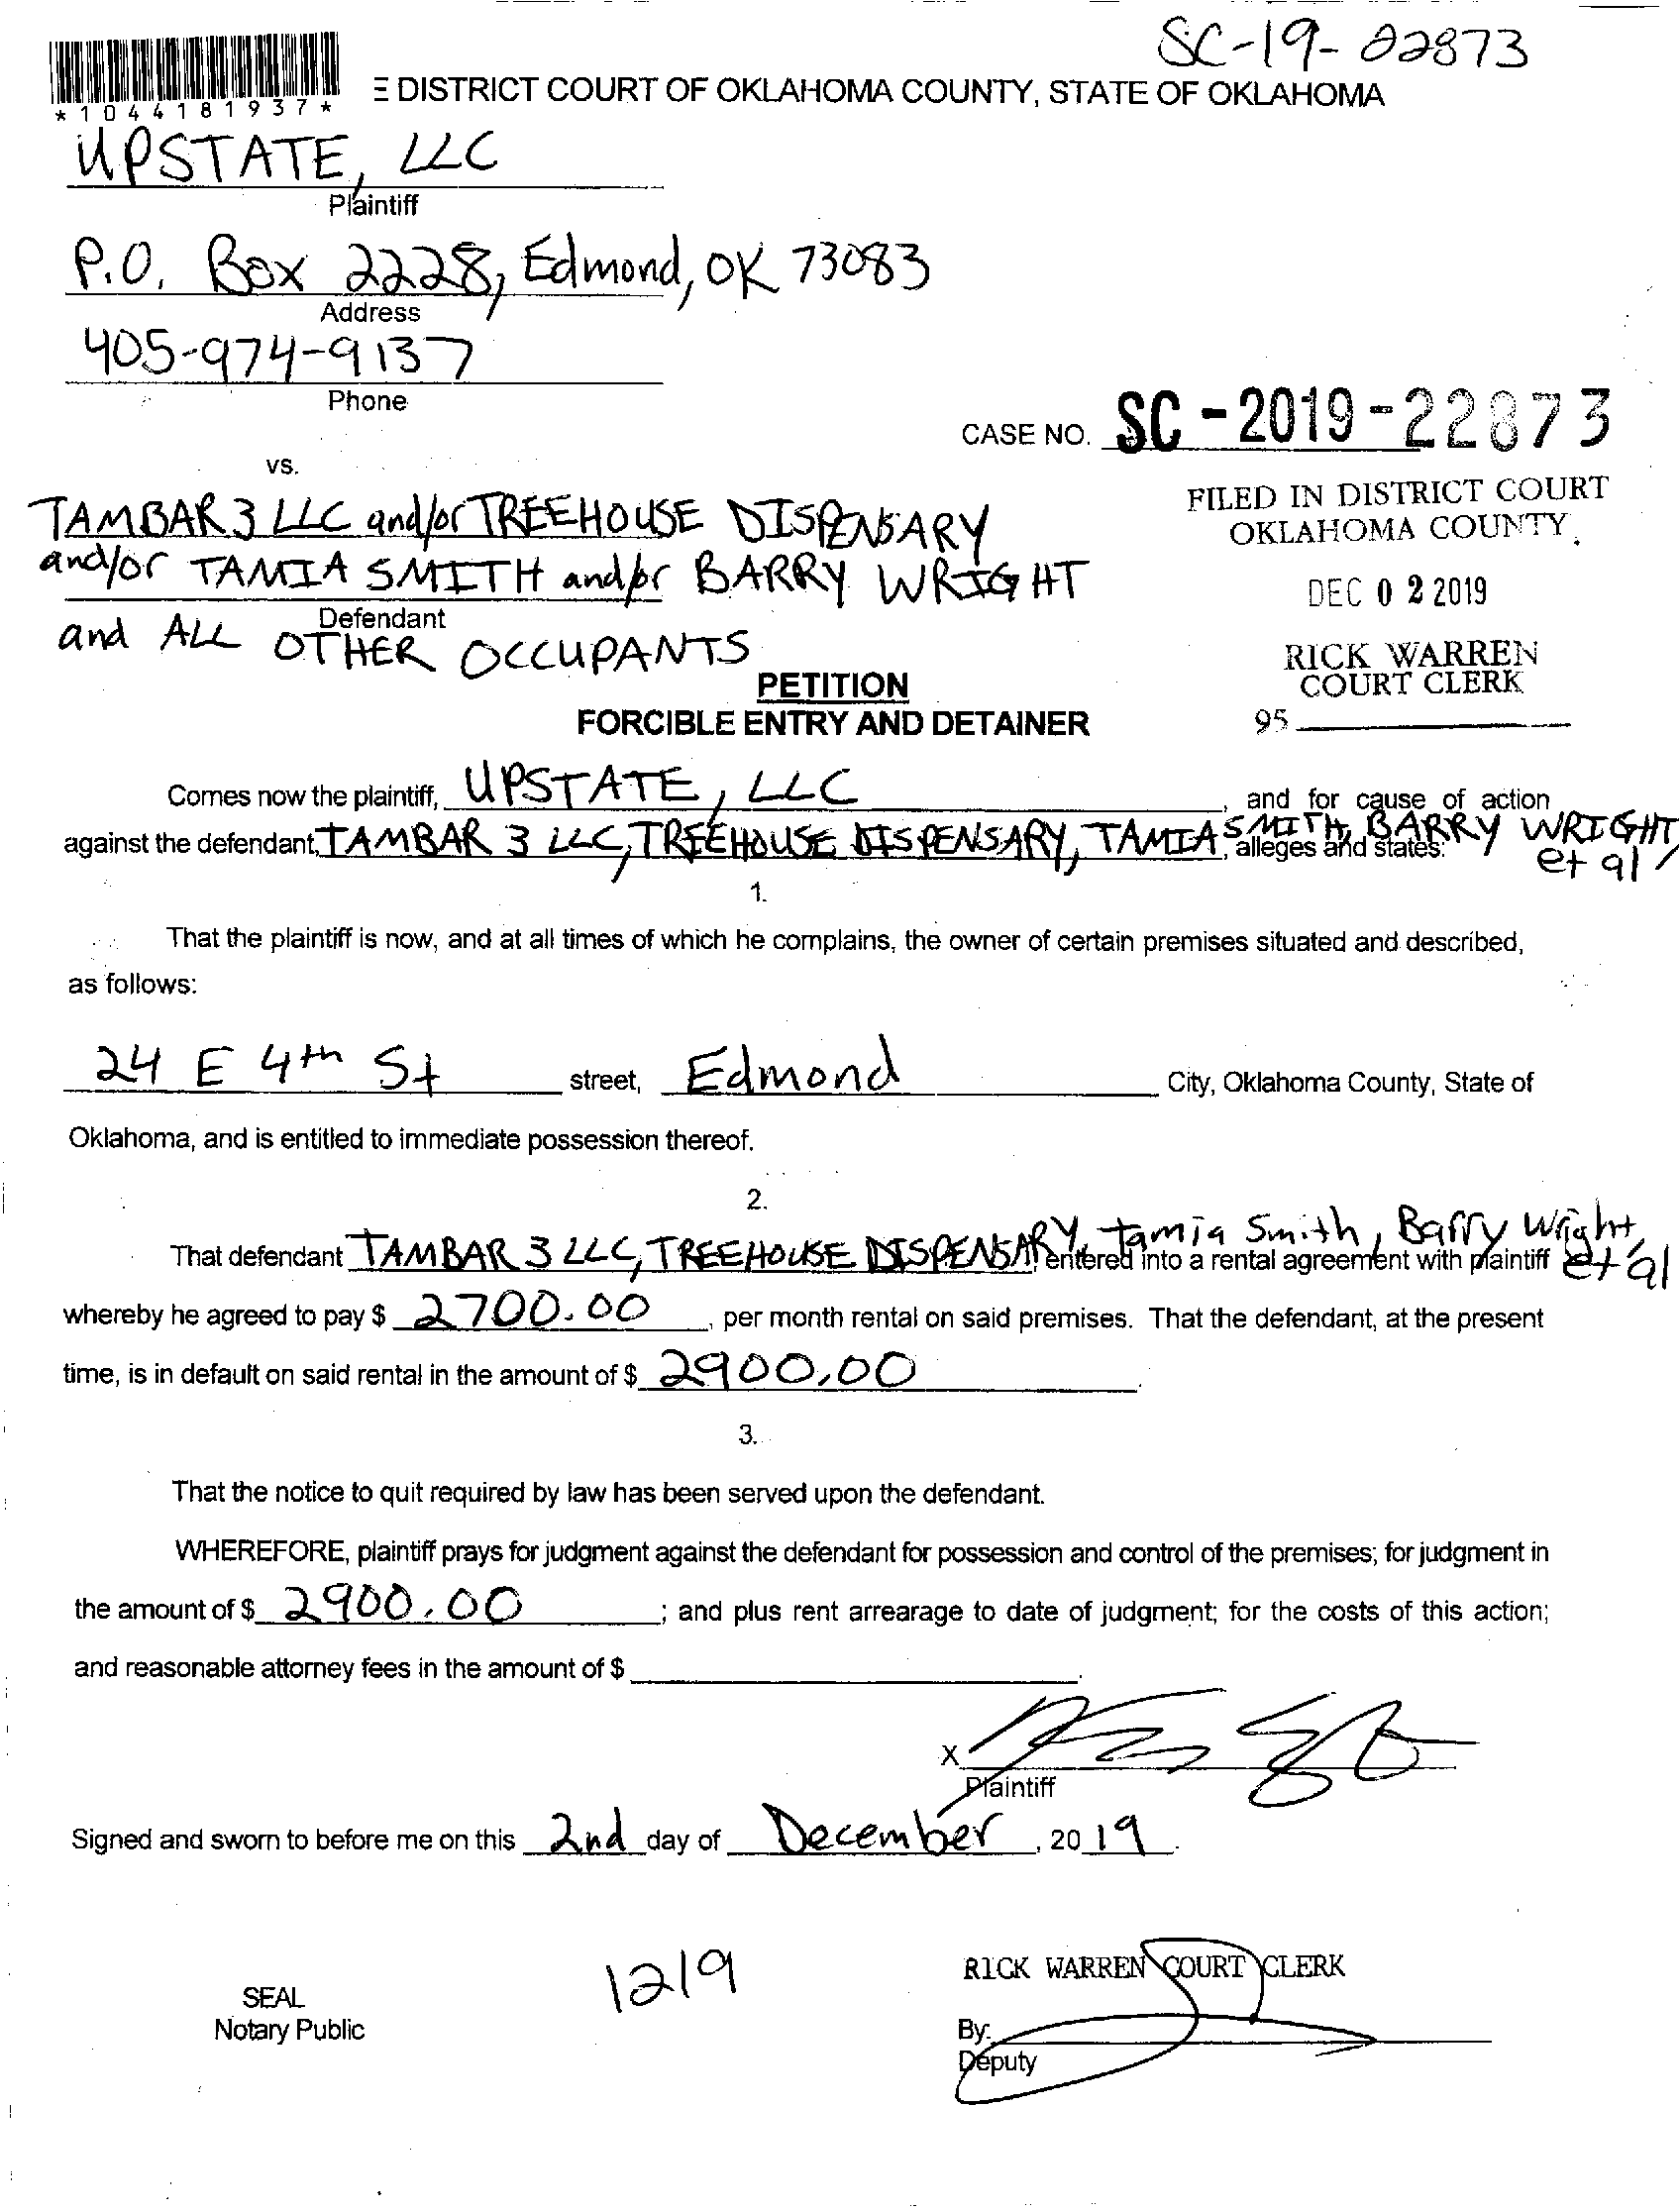 SC-19-22873
*1044181937*
E DISTRICT COURT OF OKLAHOMA COUNTY, STATE OF OKLAHOMA
UPSTATE, LLC
Plaintiff
P.O. Box 2228, Edmond, OK 73083
Address
405-974-9137
Phone
CASE NO. SC-2019-22873
vs.
FILED IN DISTRICT COURT
OKLAHOMA COUNTY
TAMBAR 3 LLC and/or TREEHOUSE DISPENSARY
and/or TAMIA SMITH and/or BARRY WRIGHT
DEC 02 2019
Defendant
and ALL OTHER OCCUPANTS
RICK WARREN
COURT CLERK
PETITION
FORCIBLE ENTRY AND DETAINER
95
Comes now the plaintiff, UPSTATE, LLC, and for cause of action
against the defendant, TAMBAR 3 LLC, TREEHOUSE DISPENSARY, TAMIA SMITH, BARRY WRIGHT, et al, alleges and states:
1.
That the plaintiff is now, and at all times of which he complains, the owner of certain premises situated and described,
as follows:
24 E 4th St street, Edmond City, Oklahoma County, State of
Oklahoma, and is entitled to immediate possession thereof.
2.
That defendant TAMBAR 3 LLC, TREEHOUSE DISPENSARY, Tamia Smith, Barry Wright, et al entered into a rental agreement with plaintiff
whereby he agreed to pay $ 2700.00, per month rental on said premises. That the defendant, at the present
time, is in default on said rental in the amount of $ 2900.00.
3.
That the notice to quit required by law has been served upon the defendant.
WHEREFORE, plaintiff prays for judgment against the defendant for possession and control of the premises; for judgment in
the amount of $ 2900.00; and plus rent arrearage to date of judgment; for the costs of this action;
and reasonable attorney fees in the amount of $
X
Plaintiff
Signed and sworn to before me on this 2nd day of December, 2019.
12/9
RICK WARREN COURT CLERK
SEAL
Notary Public
By:
Deputy